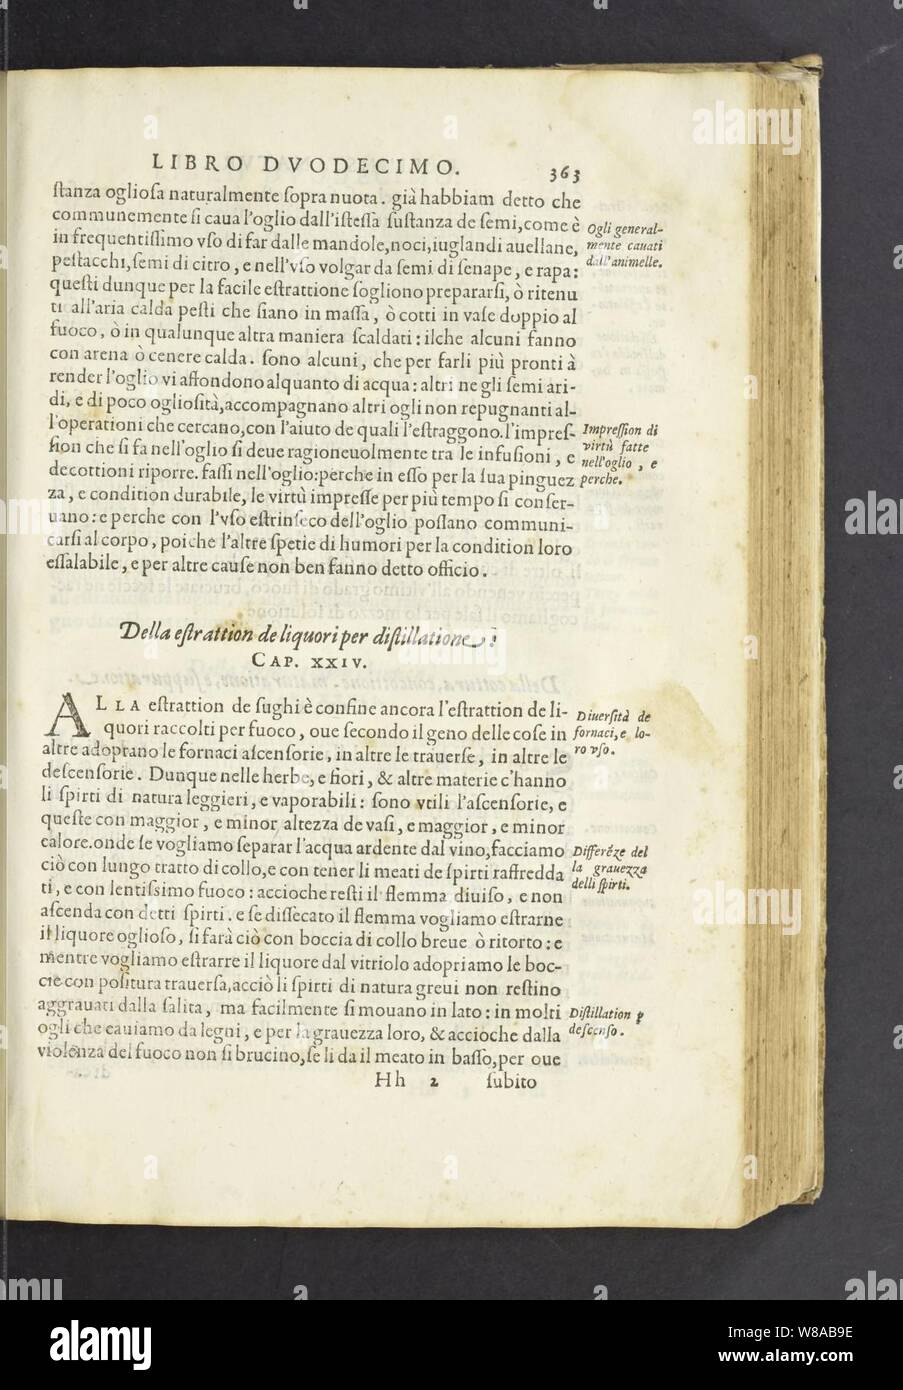 LIBRO DVODECIMO. 363
ſtanza ogliosa naturalmente ſopra nuota. già habbiam detto che
communemente ſi caua l'oglio dall'iſteſſa ſuſtanza de ſemi, come è
in frequentiſſimo vſo di far dalle mandole, noci, iuglandi auellane,
peſtacchi, ſemi di citro, e nell'vſo volgar da ſemi di ſenape, e rapa:
queſti dunque per la facile eſtrattione ſogliono prepararſi, ò ritenu
ti all'aria calda peſti che ſiano in maſſa, ò cotti in vaſe doppio al
fuoco, ò in qualunque altra maniera ſcaldati: ilche alcuni fanno
con arena ò cenere calda. ſono alcuni, che per farli più pronti à
render l'oglio vi affondono alquanto di acqua: altri ne gli ſemi ari-
di, e di poco oglioſità, accompagnano altri ogli non repugnanti al-
l'operationi che cercano, con l'aiuto de quali l'eſtraggono. l'impreſ-
ſion che ſi fa nell'oglio ſi deue ragioneuolmente tra le infuſioni, e
decottioni riporre. faſſi nell'oglio: perche in eſſo per la ſua pinguez
za, e condition durabile, le virtù impreſſe per più tempo ſi conſer-
uano: e perche con l'vſo eſtrinſeco dell'oglio poſſano communi-
carſi al corpo, poiche l'altre ſpetie di humori per la condition loro
eſſalabile, e per altre cauſe non ben fanno detto officio.
Ogli general-
mente cauati
dall'animelle.
Impreſſion di
virtù fatte
nell'oglio, e
perche.
Della eſtrattion de liquori per diſtillatione.
CAP. XXIV.
ALLA eſtrattion de ſughi è confine ancora l'eſtrattion de li-
quori raccolti per fuoco, oue ſecondo il geno delle coſe in
altre adoptano le fornaci aſcenſorie, in altre le trauerſe, in altre le
deſcenſorie. Dunque nelle herbe, e fiori, & altre materie c'hanno
li ſpirti di natura leggieri, e vaporabili: ſono vtili l'aſcenſorie, e
queſte con maggior, e minor altezza de vaſi, e maggior, e minor
calore. onde ſe vogliamo ſeparar l'acqua ardente dal vino, facciamo
ciò con lungo tratto di collo, e con tener li meati de ſpirti raffredda
ti, e con lentiſsimo fuoco: accioche reſti il flemma diuiſo, e non
aſcenda con detti ſpirti. e ſe diſſecato il flemma vogliamo eſtrarne
il liquore oglioſo, ſi farà ciò con boccia di collo breue ò ritorto: e
mentre vogliamo eſtrarre il liquore dal vitriolo adopriamo le boc-
cie con poſitura trauerſa, acciò li ſpirti di natura greui non reſtino
aggrauati dalla ſalita, ma facilmente ſi mouano in lato: in molti
ogli che cauiamo da legni, e per la grauezza loro, & accioche dalla
violenza del fuoco non ſi brucino, ſe li da il meato in baſſo, per oue
Diuerſità de
fornaci, e lo-
ro vſo.
Differēze del
la grauezza
delli ſpirti.
Diſtillation ꝑ
deſcenſo.
Hh 2 ſubito
alamy
W8AB9E
www.alamy.com